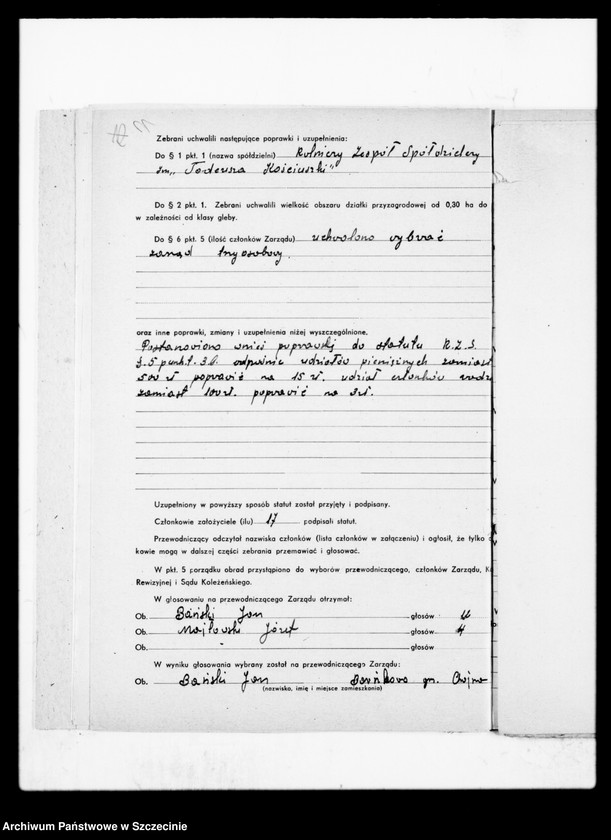 Zebrani uchwalili następujące poprawki i uzupełnienia:
Do § 1 pkt. 1 (nazwa spółdzielni) Rolniczy Zespół Spółdzielczy
im. „Tadeusza Kościuszki"
Do § 2 pkt. 1. Zebrani uchwalili wielkość obszaru działki przyzagrodowej od 0,30 ha do
w zależności od klasy gleby.
Do § 6 pkt. 5 (ilość członków Zarządu) uchwalono wybrać
zarząd trzyosobowy.
oraz inne poprawki, zmiany i uzupełnienia niżej wyszczególnione.
Postanowiono wnieś poprawkę do statutu R.Z.S.
§.5 punkt.3 odpewnie udziałów pieniężnych zamiast
500 zł poprawić na 15 zł. udział członków
zamiast 100 zł. poprawić na 3 zł.
Uzupełniony w powyższy sposób statut został przyjęty i podpisany.
Członkowie założyciele (ilu) 17 podpisali statut.
Przewodniczący odczytał nazwiska członków (lista członków w załączeniu) i ogłosił, że tylko
kowie mogą w dalszej części zebrania przemawiać i głosować.
W pkt. 5 porządku obrad przystąpiono do wyborów przewodniczącego, członków Zarządu, K
Rewizyjnej i Sądu Koleżeńskiego.
W głosowaniu na przewodniczącego Zarządu otrzymał:
Ob. Bański Jan głosów
Ob. Majłowski Józef głosów 4
Ob. głosów
W wyniku głosowania wybrany został na przewodniczącego Zarządu:
Ob. Bański Jan gm. Chojna
(nazwiska, imię i miejsce zamieszkania)
Archiwum Państwowe w Szczecinie